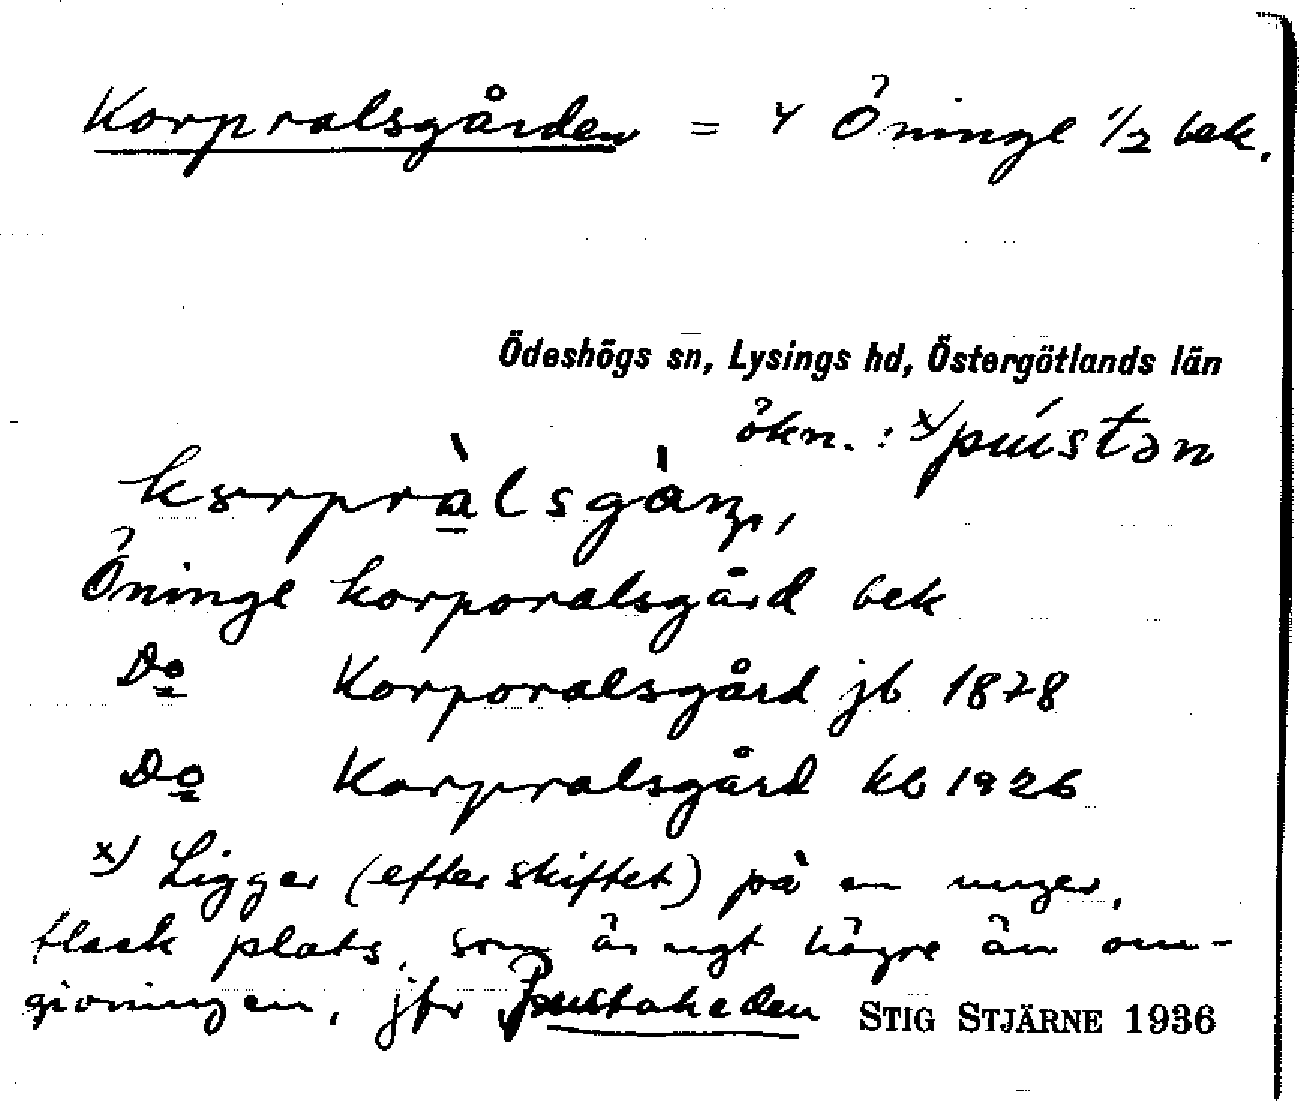 Korpralsgården = Y Öninge 1/2 bek.
Ödeshögs sn, Lysings hd, Östergötlands län
ökn. : x) pústən
korpràlsgà̊ṇ,
Öninge korporalsgård bek
Do Korporalsgård jb 1878
Do Korpralsgård kb 1926
x) Ligger (efter skiftet) på en mager,
flack plats, som är ngt högre än om-
givningen, jfr Pustaheden STIG STJÄRNE 1936